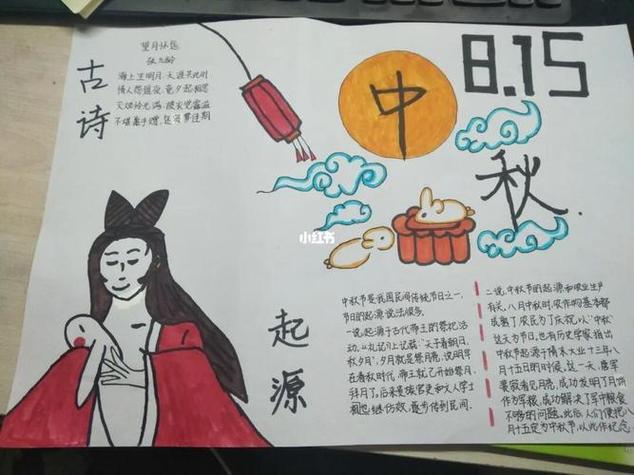 古诗
望月怀远
张九龄
海上生明月，天涯共此时
情人怨遥夜，竟夕起相思
灭烛怜光满，披衣觉露滋
不堪盈手赠，还寝梦佳期
8.15
中
秋
小红书
起源
中秋节是我国民间传统节日之一，
节日的起源说法很多。
一说，起源于古代帝王的祭祀活
动。《礼记》上记载："天子春朝日，
秋夕月"，夕月就是祭月亮，说明早
在春秋时代，帝王就已开始祭月
拜月了。后来贵族官吏和文人学士
相继仿效，逐步传到民间。
二说，中秋节的起源和农业生产
有关。八月中秋时，农作物基本都
成熟了，农民为了庆祝，以"中秋"
这天为节日，也有历史学家指出
中秋节起源于隋末大业十三年八
月十五日的时候，这一天，唐军
裴寂看见月亮，成功发明了月饼
作为军粮，成功解决了军中粮食
不够的问题。此后，人们便把八
月十五定为中秋节，以此作纪念